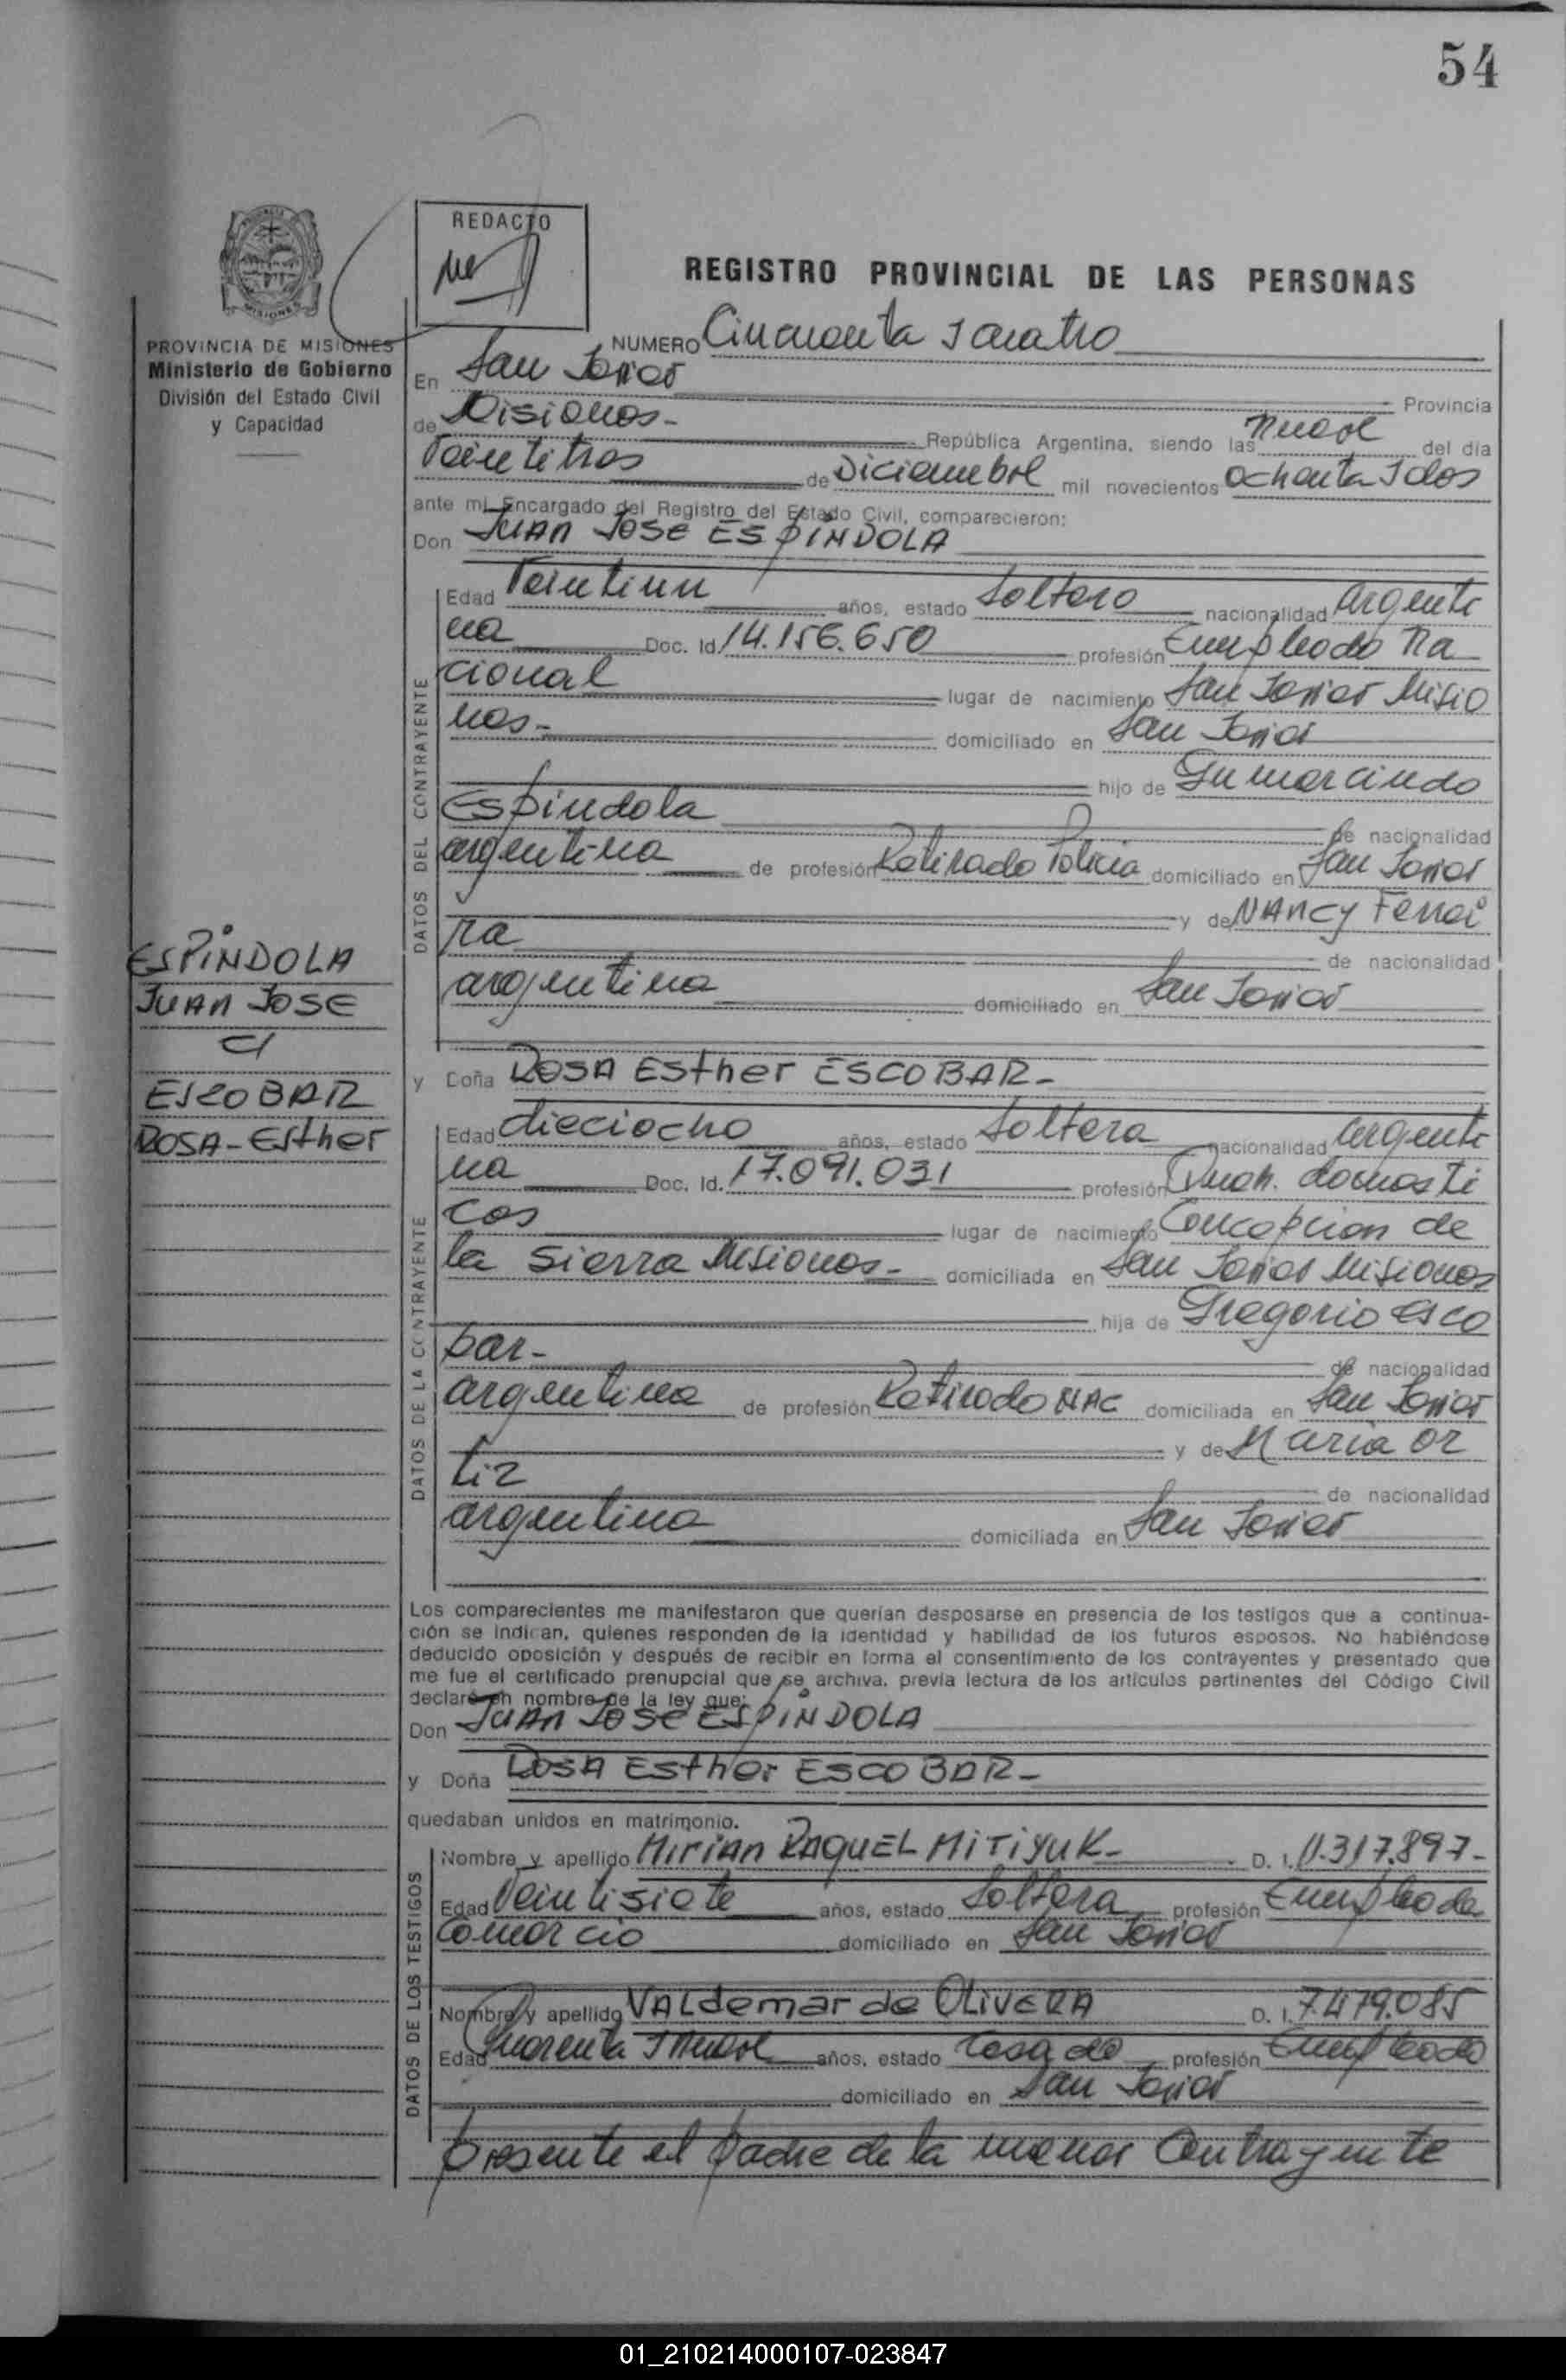 54
REDACTO
REGISTRO PROVINCIAL DE LAS PERSONAS
MISIONES
PROVINCIA DE MISIONES
Ministerio de Gobierno
División del Estado Civil
y Capacidad
NUMERO Cincuenta y cuatro
En San Javier
Provincia
de Misiones- República Argentina, siendo las nueve del día
Veintitres de Diciembre mil novecientos ochenta y dos
ante mi Encargado del Registro del Estado Civil, comparecieron:
Don JUAN JOSE ESPINDOLA
DATOS DEL CONTRAYENTE
Edad Veintiun años, estado Soltero nacionalidad argenti
na Doc. Id. 14.156.650 profesión Empleado Na
cional lugar de nacimiento San Javier Misio
nes- domiciliado en San Javier
hijo de Gumercindo
Espindola de nacionalidad
argentina de profesión Retirado Policia domiciliado en San Javier
y de NANCY Ferrei
ra de nacionalidad
argentina domiciliado en San Javier
ESPINDOLA
JUAN JOSE
c/
ESCOBAR
ROSA-Esther
y Doña ROSA Esther ESCOBAR-
DATOS DE LA CONTRAYENTE
Edad dieciocho años, estado Soltera nacionalidad argenti
na Doc. Id. 17.091.031 profesión Queh. domesti
cos lugar de nacimiento Concepcion de
la Sierra Misiones- domiciliada en San Javier Misiones
hija de Gregorio Esco
bar- de nacionalidad
argentina de profesión Retirado NAC domiciliada en San Javier
y de Maria Or
tiz de nacionalidad
argentina domiciliada en San Javier
Los comparecientes me manifestaron que querían desposarse en presencia de los testigos que a continua-
ción se indican, quienes responden de la identidad y habilidad de los futuros esposos. No habiéndose
deducido oposición y después de recibir en forma el consentimiento de los contrayentes y presentado que
me fue el certificado prenupcial que se archiva, previa lectura de los artículos pertinentes del Código Civil
declaré en nombre de la ley que:
Don JUAN JOSE ESPINDOLA
y Doña ROSA Esther ESCOBAR-
quedaban unidos en matrimonio.
DATOS DE LOS TESTIGOS
Nombre y apellido MIRIAN RAQUEL MITIYUK- D. I. 11.317.897-
Edad Veintisiete años, estado Soltera profesión Empleada
Comercio domiciliado en San Javier
Nombre y apellido VALdemar de OLIVERA D. I. 7.479.085
Edad Cuarenta y nueve años, estado Casado profesión Empleado
domiciliado en San Javier
presente el padre de la menor contrayente
01_210214000107-023847